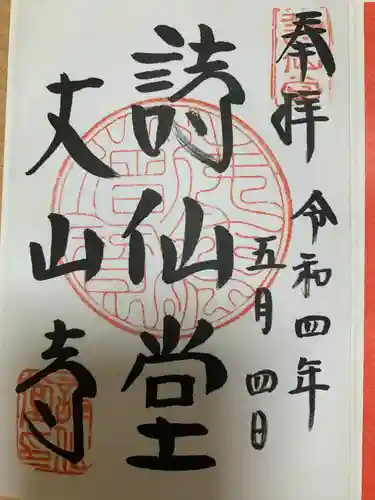 奉拝
令和四年
五月四日
詩仙堂
丈山寺